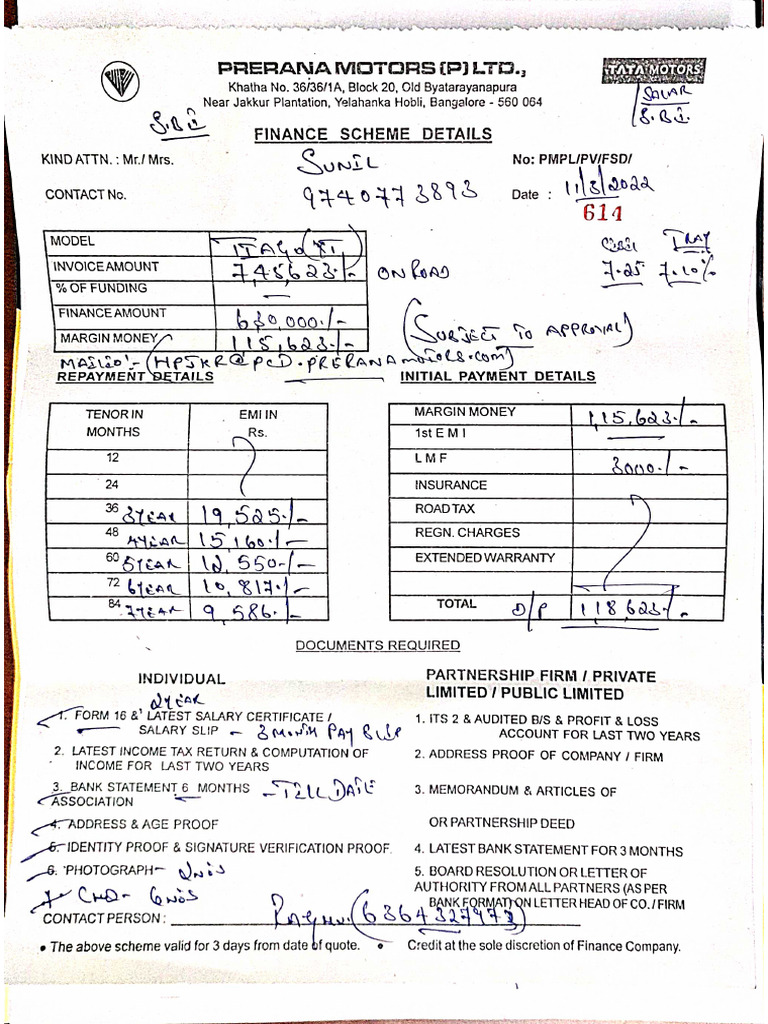 PRERANA MOTORS (P) LTD.,
TATA MOTORS
Khatha No. 36/36/1A, Block 20, Old Byatarayanapura
Near Jakkur Plantation, Yelahanka Hobli, Bangalore - 560 064
S.B.I
SALAR
S.B.I.
FINANCE SCHEME DETAILS
KIND ATTN. : Mr./ Mrs. SUNIL No: PMPL/PV/FSD/
CONTACT No. 9740773893 Date : 11/3/2022
614
MODEL TIAGO (XT)
INVOICE AMOUNT 7,45,623./- ON ROAD 7.25 7.10%
TRAY
% OF FUNDING —
FINANCE AMOUNT 630,000./-
(SUBJECT TO APPROVAL)
MARGIN MONEY 115,623./-
MAIL ID :- (HPSKR@PCD.PRERANAMOTORS.COM)
REPAYMENT DETAILS INITIAL PAYMENT DETAILS
TENOR IN MONTHS EMI IN Rs.
12
24
36 3YEAR 19,525./-
48 4YEAR 15,160./-
60 5YEAR 12,550./-
72 6YEAR 10,817./-
84 7YEAR 9,586./-
MARGIN MONEY 1,15,623./-
1st E M I
L M F 3000./-
INSURANCE
ROAD TAX
REGN. CHARGES
EXTENDED WARRANTY
TOTAL D/P 118,623./-
DOCUMENTS REQUIRED
INDIVIDUAL
2YEAR
1. FORM 16 & LATEST SALARY CERTIFICATE /
SALARY SLIP - 3 MONTH PAY SLIP
2. LATEST INCOME TAX RETURN & COMPUTATION OF
INCOME FOR LAST TWO YEARS
3. BANK STATEMENT 6 MONTHS - TILL DATE
ASSOCIATION
4. ADDRESS & AGE PROOF
5. IDENTITY PROOF & SIGNATURE VERIFICATION PROF.
6. PHOTOGRAPH - 2NOS
7 CHQ - 6NOS
PARTNERSHIP FIRM / PRIVATE
LIMITED / PUBLIC LIMITED
1. ITS 2 & AUDITED B/S & PROFIT & LOSS
ACCOUNT FOR LAST TWO YEARS
2. ADDRESS PROOF OF COMPANY / FIRM
3. MEMORANDUM & ARTICLES OF
OR PARTNERSHIP DEED
4. LATEST BANK STATEMENT FOR 3 MONTHS
5. BOARD RESOLUTION OR LETTER OF
AUTHORITY FROM ALL PARTNERS (AS PER
BANK FORMAT) ON LETTER HEAD OF CO. / FIRM
CONTACT PERSON : Raghu. (6364327973)
• The above scheme valid for 3 days from date of quote. • Credit at the sole discretion of Finance Company.